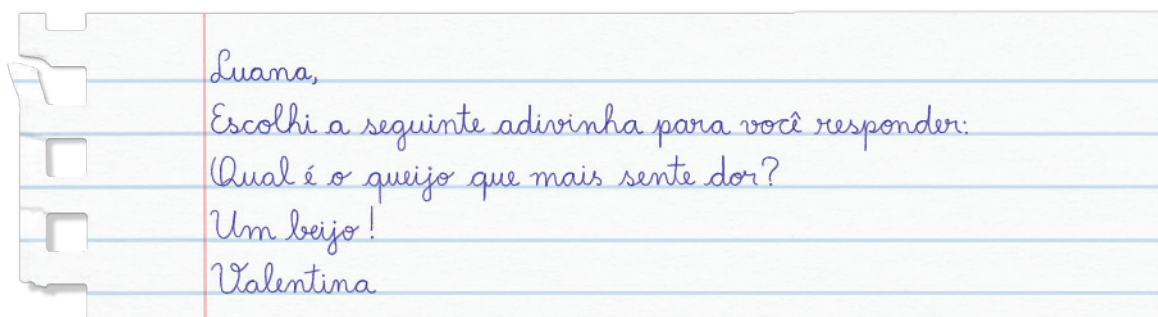 Luana,
Escolhi a seguinte adivinha para você responder:
Qual é o queijo que mais sente dor?
Um beijo!
Valentina